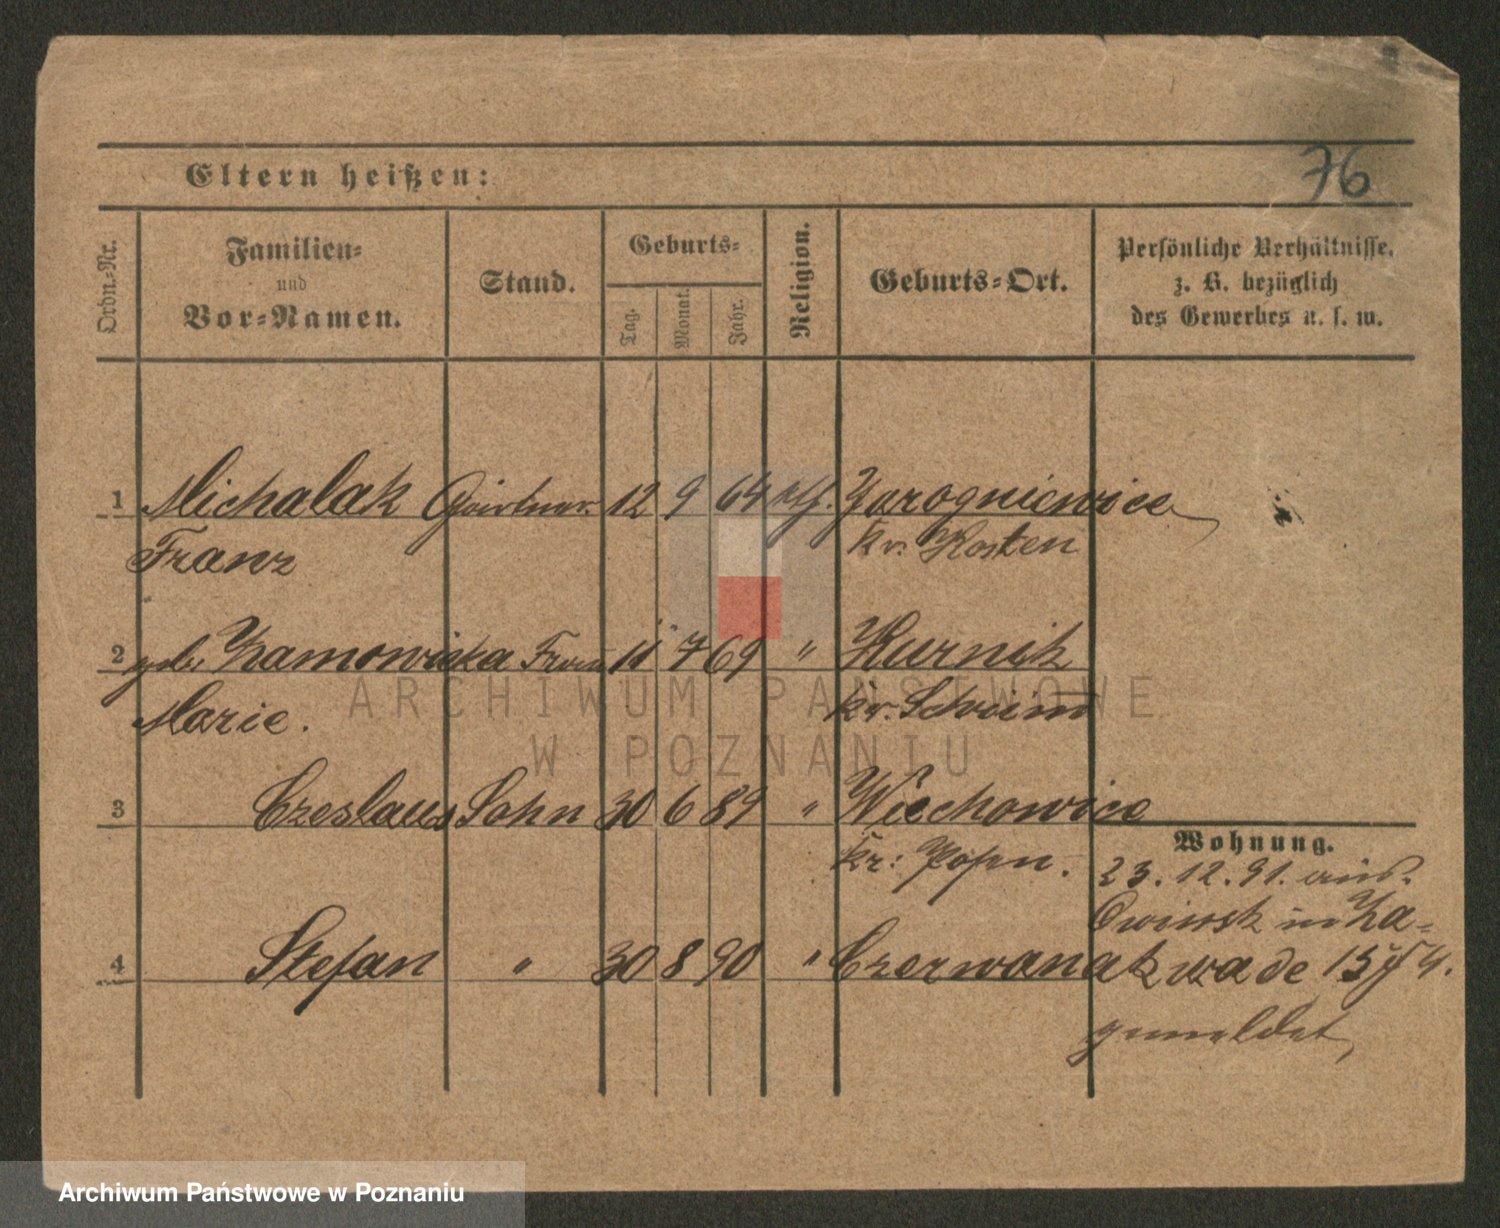 76
Eltern heißen:
Ordn.-Nr.
Familien-
und
Vor-Namen.
Stand.
Geburts-
Tag.
Monat.
Jahr.
Religion.
Geburts-Ort.
Persönliche Verhältnisse.
z. B. bezüglich
des Gewerbes u. s. w.
1 Michalak Gärtner. 12 9 64 kth. Jarogniewice
Franz kr. Kosten
2 geb. Frau 11 7 69 " Kurnik
Marie. kr. Schrimm
ARCHIWUM PAŃSTWOWE
W POZNANIU
3 Czeslaus Sohn 30 6 89 " Wiechowice
kr: Posen.
Wohnung.
23.12.91. aus.
Owinsk in Za-
4 Stefan " 30 8 90 " Czerwonak wade 15/4.
gemeldet,
Archiwum Państwowe w Poznaniu